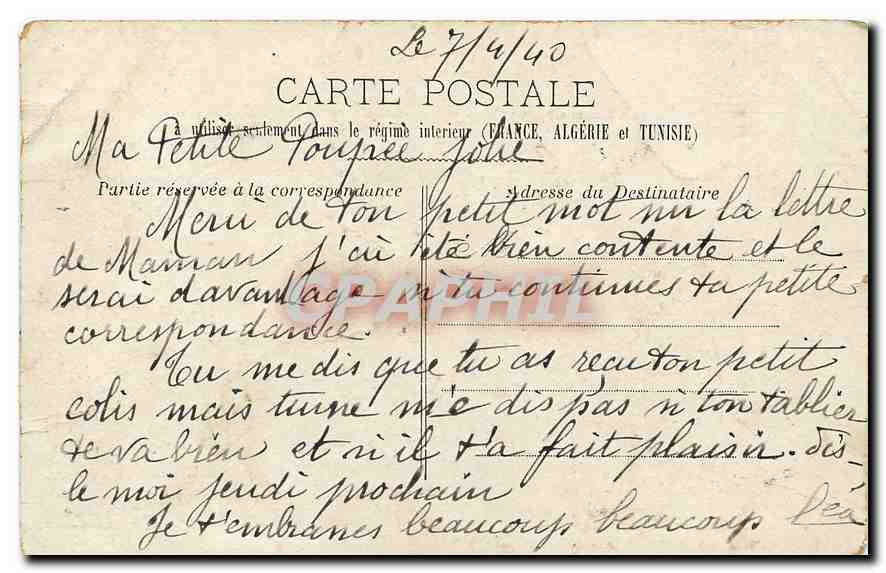 Le 7/4/40
CARTE POSTALE
à utiliser seulement dans le régime interieur (FRANCE, ALGÉRIE et TUNISIE)
Ma Petite Poupée Jolie
Partie réservée à la correspondance
Adresse du Destinataire
Merci de ton petit mot sur la lettre
de Maman j'ai été bien contente et le
serai davantage si tu continues ta petite
CPAPHIL
correspondance.
Tu me dis que tu as reçu ton petit
colis mais tu ne m'e dis pas si ton tablier
te va bien et si il t'a fait plaisir. dis-
le moi jeudi prochain
Je t'embrasses beaucoup beaucoup Léa